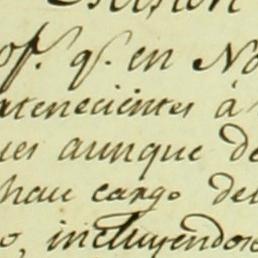 of. q. en No
atenecientes à
ues aunque de
hau cargo del
o, incluyendose